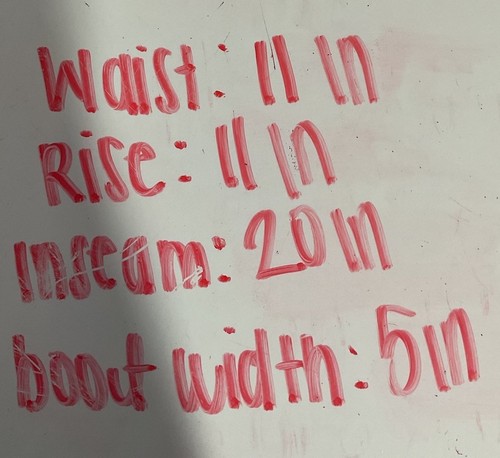 Waist: 11 in
Rise: 11 in
inseam: 20 in
boout width: 5 in